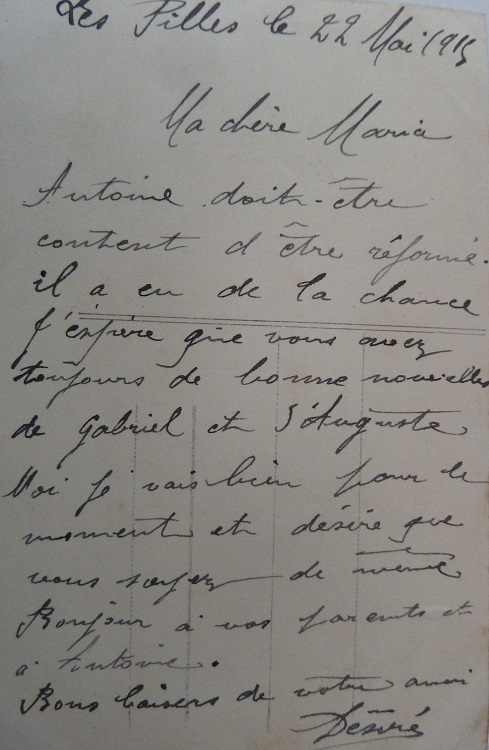 Les Pilles le 22 Mai 1915
Ma chère Maria
Antoine doit-être
content d'être réformé.
il a eu de la chance
J'espère que vous avez
toujours de bonne nouvelles
de Gabriel et d'Auguste
Moi je vais bien pour le
moment et désire que
vous soyez de même
Bonjour à vos parents et
à Antoine.
Bons baisers de votre ami
Désiré